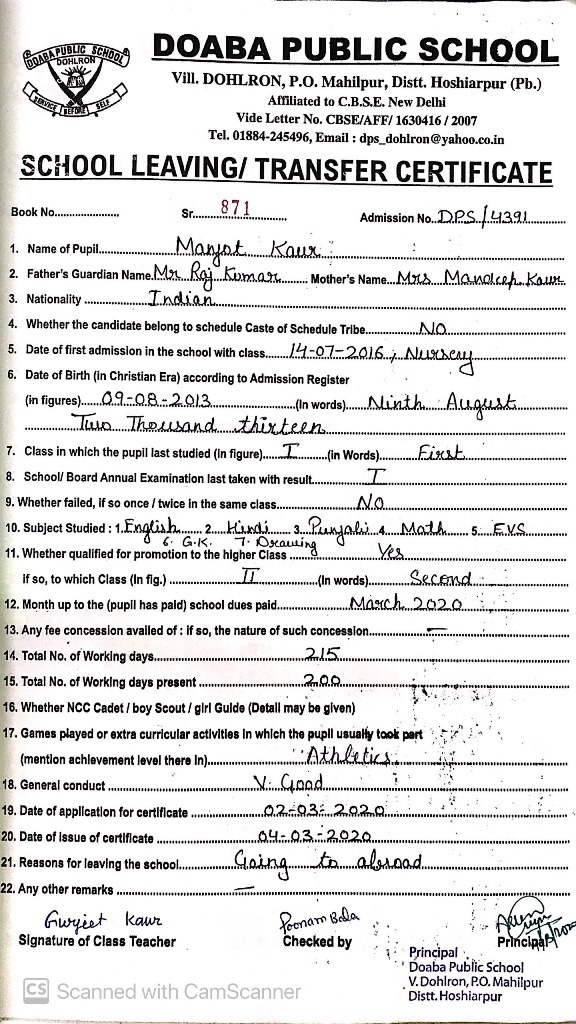 DOABA PUBLIC SCHOOL
DOHLRON
SERVICE BEFORE SELF
DOABA PUBLIC SCHOOL
Vill. DOHLRON, P.O. Mahilpur, Distt. Hoshiarpur (Pb.)
Affiliated to C.B.S.E. New Delhi
Vide Letter No. CBSE/AFF/ 1630416 / 2007
Tel. 01884-245496, Email : dps_dohlron@yahoo.co.in
SCHOOL LEAVING/ TRANSFER CERTIFICATE
Book No.................... Sr.....871.............. Admission No. DPS/4391
1. Name of Pupil........Manjot Kaur
2. Father's Guardian Name. Mr Raj Kumar Mother's Name Mrs Mandeep Kaur
3. Nationality ........Indian
4. Whether the candidate belong to schedule Caste of Schedule Tribe.......NO
5. Date of first admission in the school with class......14-07-2016, Nursery
6. Date of Birth (in Christian Era) according to Admission Register
(in figures).....09-08-2013 (In words)...Ninth August
Two Thousand thirteen
7. Class in which the pupil last studied (in figure)....I....(in Words)......First
8. School/ Board Annual Examination last taken with result.......I
9. Whether failed, if so once / twice in the same class.......No
10. Subject Studied : 1. English 2. Hindi 3. Punjabi 4. Math 5. EVS
6. G.K. 7. Drawing
11. Whether qualified for promotion to the higher Class.......Yes
if so, to which Class (In fig.) ......II......(In words)......Second
12. Month up to the (pupil has paid) school dues paid.......March 2020
13. Any fee concession availed of : if so, the nature of such concession.......—
14. Total No. of Working days.......215
15. Total No. of Working days present.......200
16. Whether NCC Cadet / boy Scout / girl Guide (Detail may be given)
17. Games played or extra curricular activities in which the pupil usually took part
(mention achievement level there In).......Athletics
18. General conduct.......V. Good
19. Date of application for certificate.......02-03-2020
20. Date of issue of certificate.......04-03-2020
21. Reasons for leaving the school.......Going to abroad
22. Any other remarks.......—
Gurjeet Kaur Poonam Bala
Signature of Class Teacher Checked by Principal
Principal
Doaba Public School
V. Dohlron, P.O. Mahilpur
Distt. Hoshiarpur
CS Scanned with CamScanner